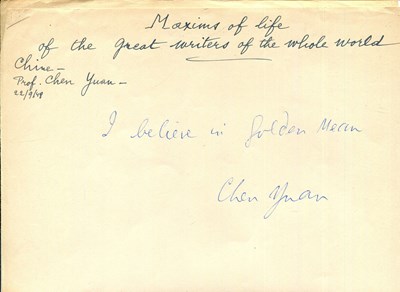 Maxims of life
of the great writers of the whole world
Chine -
Prof. Chen Yuan -
22/9/48
I believe in Golden Mean
Chen Yuan